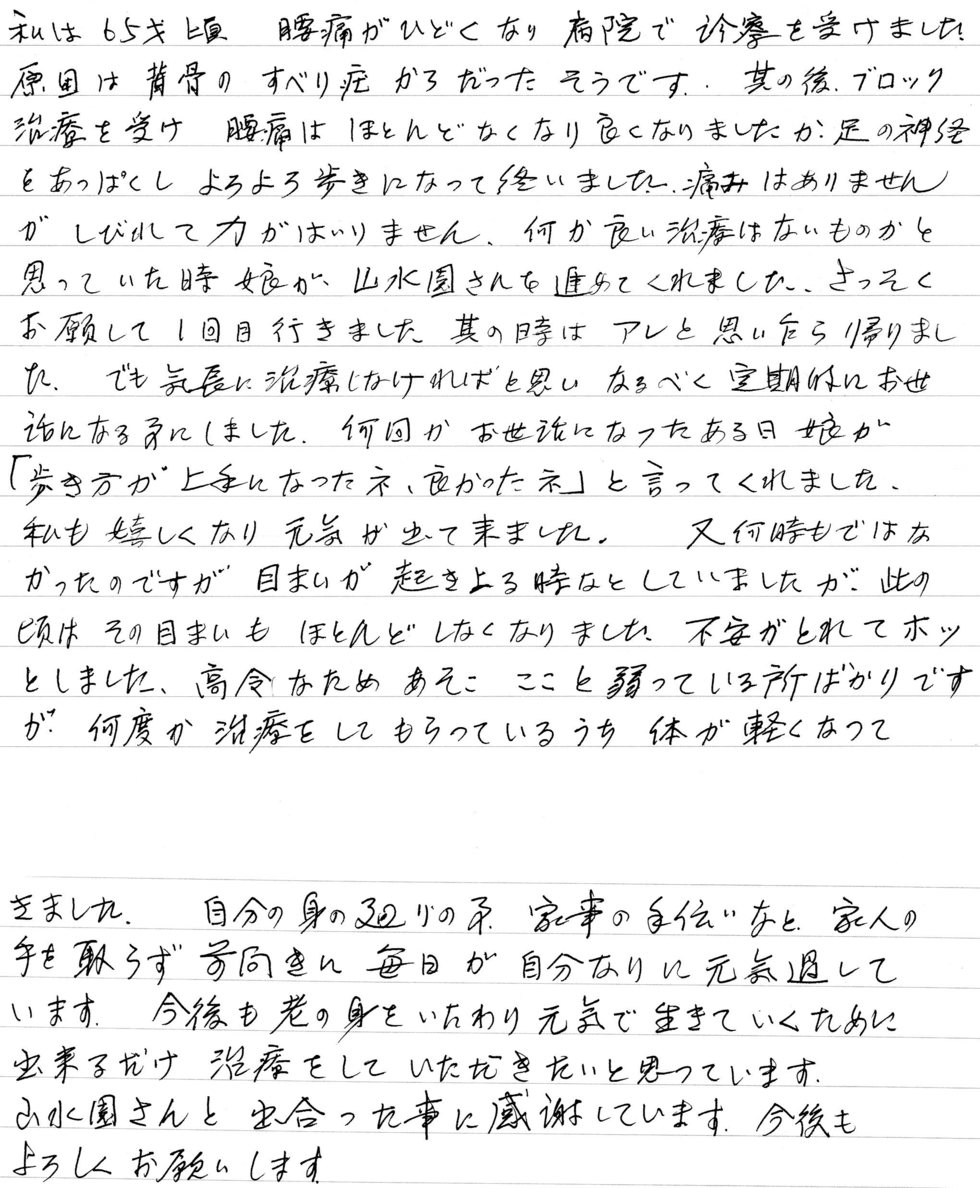 私は65才頃 腰痛がひどくなり 病院で 診察を受けました
原因は背骨の すべり症 からだった そうです. 其の後、ブロック
治療を受け 腰痛は ほとんどなくなり良くなりましたが、足の神経
をあっぱくし よろよろ歩きになって終いました、痛みはありません
が しびれて力がはいりません、何か良い治療はないものかと
思っていた時 娘が、山水園さんを進めてくれました、さっそく
お願して 1回目行きました 其の時は アレと思い乍ら帰りまし
た. でも 気長に治療しなければと思い なるべく定期的にお世
話になる事にしました. 何回か お世話になったある日 娘が
「歩き方が 上手になったネ、良かったネ」と言ってくれました、
私も嬉しくなり 元気が出て来ました。 又何時もではな
かったのですが 目まいが 起き上る時などしていましたが、此の
頃は その目まいも ほとんどしなくなりました 不安がとれてホッ
としました、高令なため あそこ ここと弱っている所ばかりです
が、何度か 治療をしてもらっているうち 体が軽くなって
きました. 自分の身の廻りの事、家事の手伝いなど、家人の
手を取らず 前向きに 毎日が 自分なりに元気過して
います. 今後も 老の身をいたわり元気で生きていくために
出来るだけ 治療をしていただきたいと思っています.
山水園さんと 出合った事に感謝しています. 今後も
よろしくお願いします